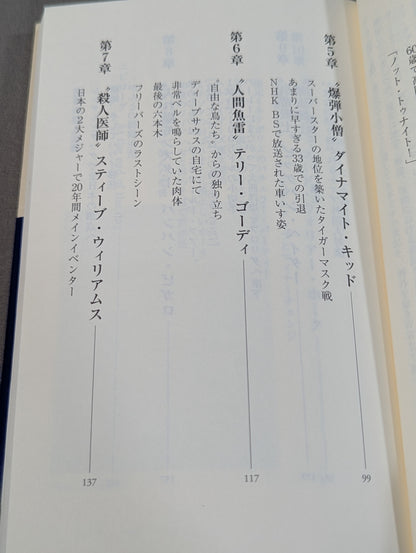 60歳で
「ノット・トゥナイト！」
第5章 〝爆弾小僧〟ダイナマイト・キッド 99
スーパースターの地位を築いたタイガーマスク戦
あまりに早すぎる33歳での引退
NHK BSで放送された車いす姿
第6章 〝人間魚雷〟テリー・ゴーディ 117
〝自由な鳥たち〟からの独り立ち
ディープサウスの自宅にて
非常ベルを鳴らしていた肉体
フリーバーズのラストシーン
最後の六本木
第7章 〝殺人医師〟スティーブ・ウィリアムス 137
日本の2大メジャーで20年間メインイベンター